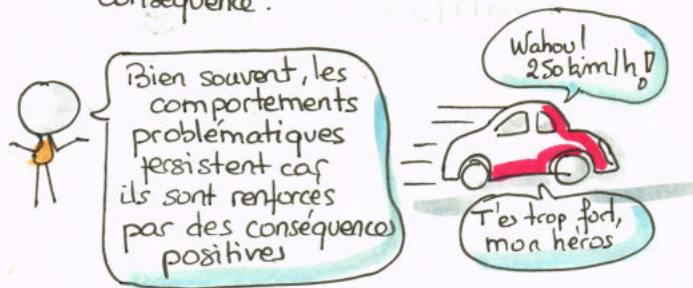 conséquence.
Bien souvent, les
comportements
problématiques
persistent car
ils sont renforcés
par des conséquences
positives
Wahou!
250 km/h!
T'es trop fort,
mon héros